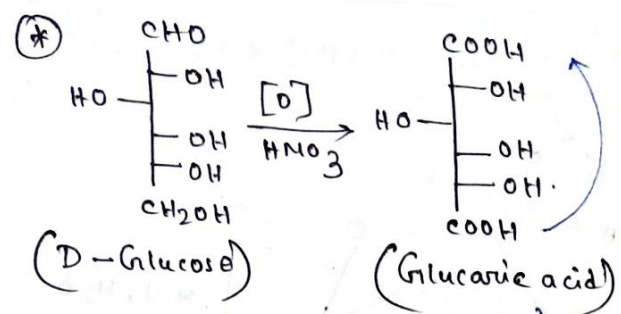 *
CHO
OH
HO
OH
OH
CH2OH
(D-Glucose)
[O]
HNO3
COOH
OH
HO
OH
OH.
COOH
(Glucaric acid)